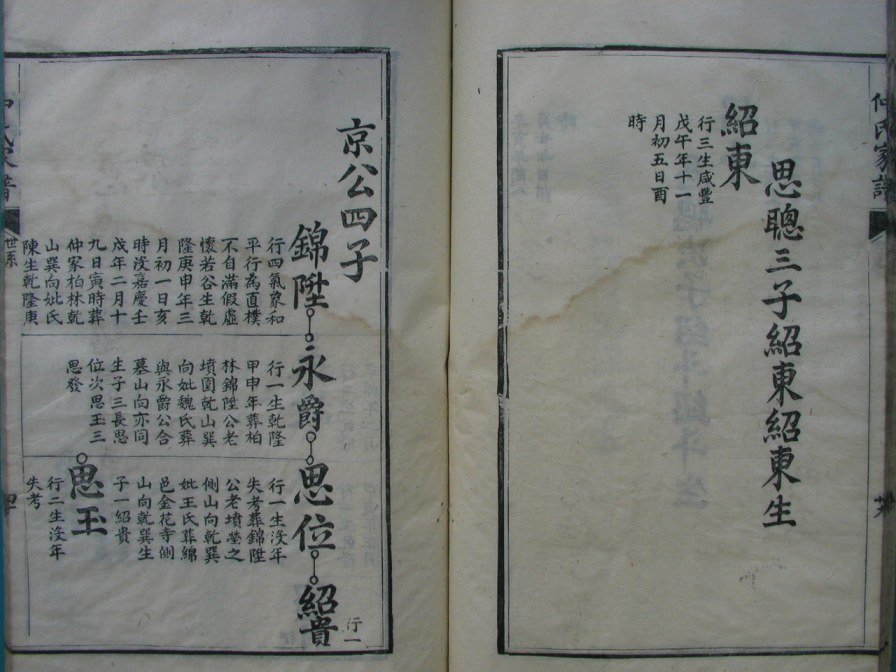 仲氏家譜
思聰三子紹東紹東生
紹東
行三生咸豐
戊午年十一
月初五日酉
時
京公四子
錦陞
行四氣象和
平行為直樸
不自滿假虛
懷若谷生乾
隆庚申年三
月初一日亥
時沒嘉慶壬
戌年二月十
九日寅時葬
仲家柏林乾
山巽向妣氏
陳生乾隆庚
永爵
行一生乾隆
甲申年葬柏
林錦陞公老
墳園乾山巽
向妣魏氏葬
與永爵公合
墓山向亦同
生子三長思
位次思玉三
思發
思位
行一生沒年
失考葬錦陞
公老墳塋之
側山向乾巽
妣王氏葬綿
邑金花寺側
山向乾巽生
子一紹貴
紹貴
行一
思玉
行二生沒年
失考
氏家譜
世系